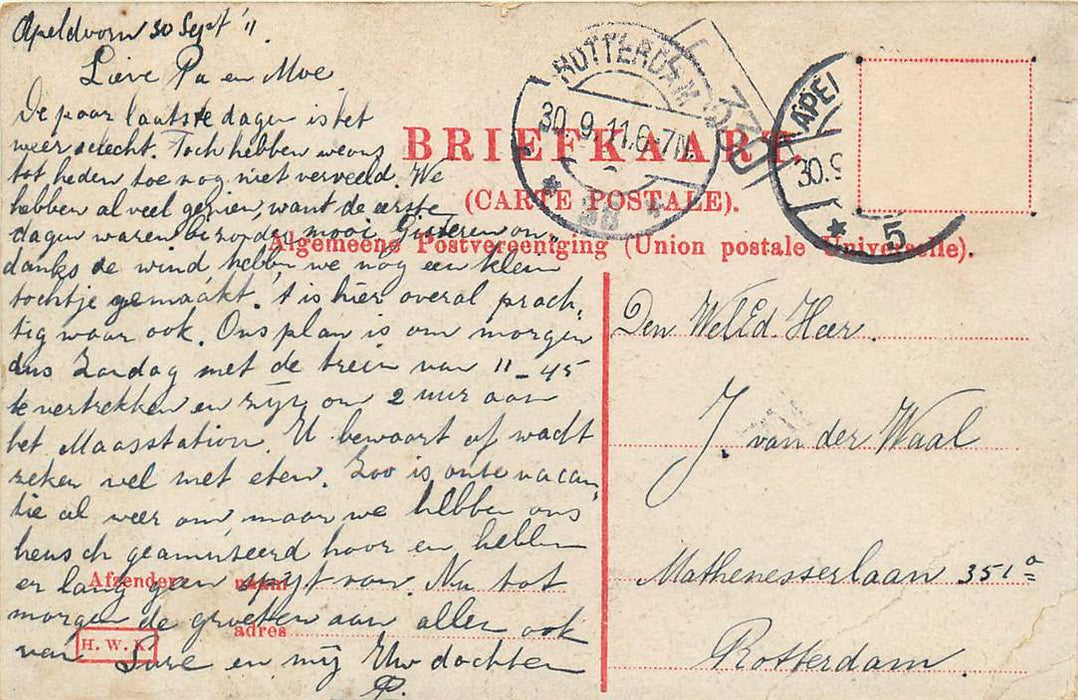 Apeldoorn 30 Sept '11.
Lieve Pa en Moe
De paar laatste dagen is het
weer slecht. Toch hebben we ons
tot heden toe nog niet verveeld. We
hebben al veel gezien, want de eerste
dagen waren bizonder mooi. Gisteren on-
danks de wind hebben we nog een klein
tochtje gemaakt. 't is hier overal prach-
tig waar ook. Ons plan is om morgen
dus Zondag met de trein van 11-45
te vertrekken en zijn om 2 uur aan
het Maasstation. U bewaart of wacht
zeker wel met eten. Zoo is onze vacan-
tie al weer om maar we hebben ons
heusch geamuseerd hoor en hebben
er lang geen spijt van. Nu tot
morgen de groeten aan allen ook
van en mij Uw dochter
P.
BRIEFKAART
(CARTE POSTALE).
Algemeene Postvereeniging (Union postale Universelle).
ROTTERDAM
30.9.11.6-7N.
330
APEL
30.9
5
Den WelEd. Heer.
J. van der Waal
Mathenesserlaan 351a
Rotterdam
Afzender: naam
adres
H. W. K.